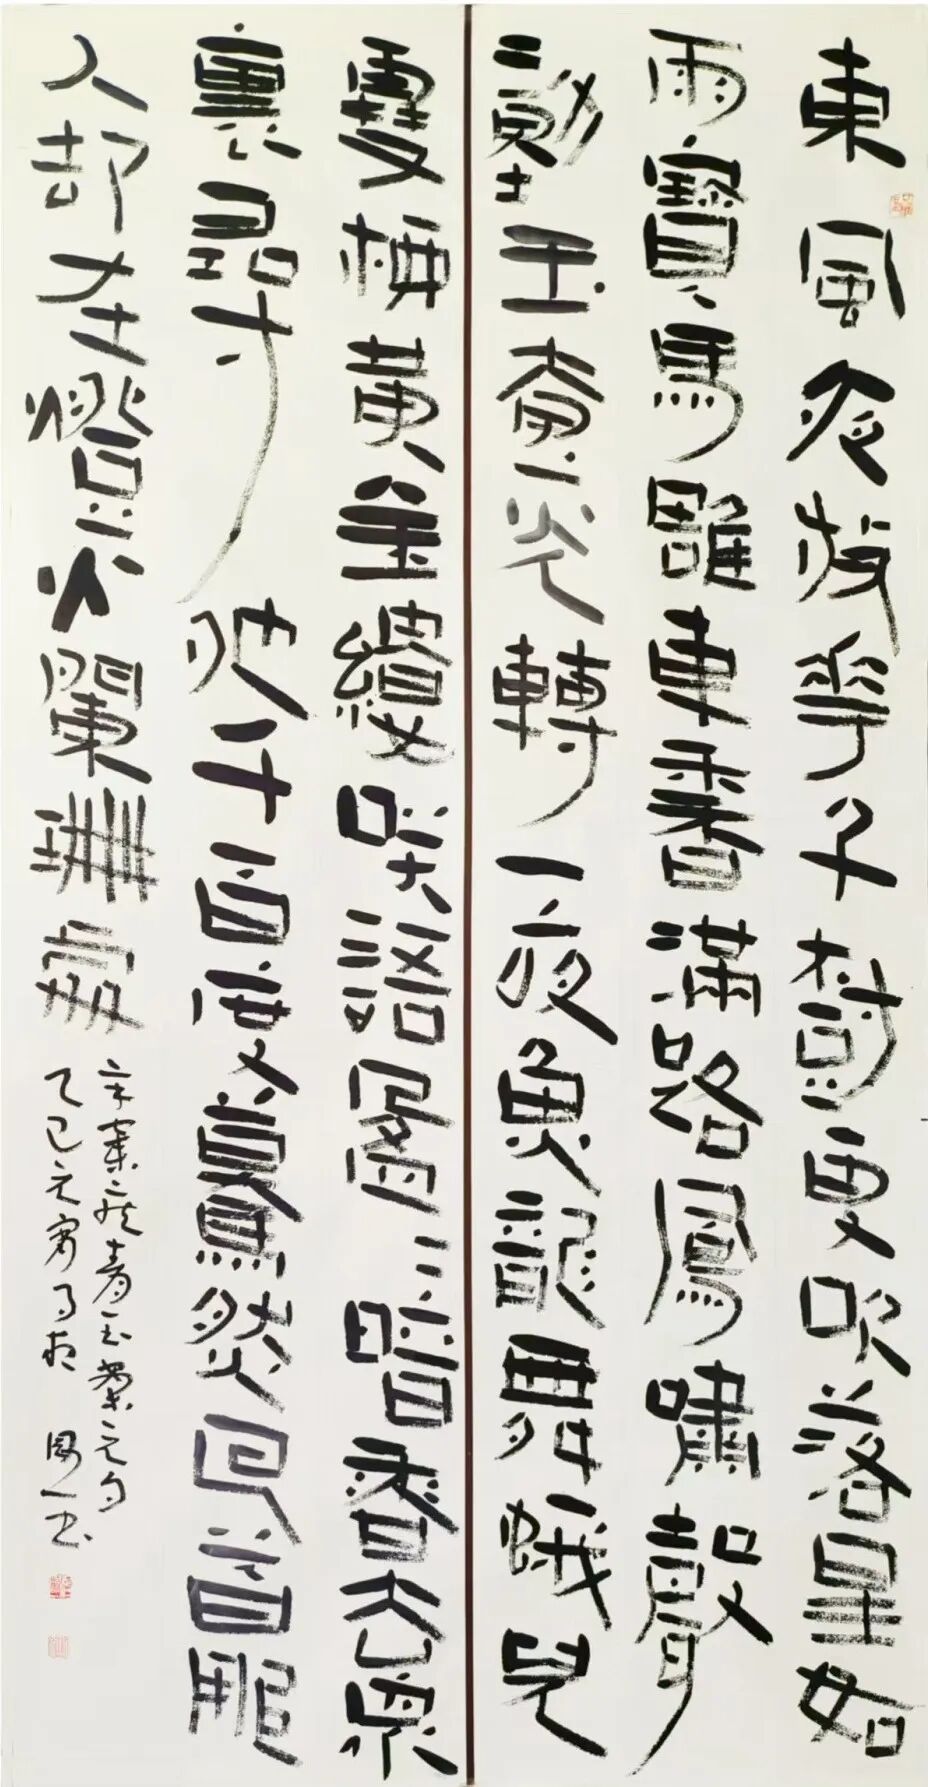 東風夜放華千樹更吹落星如
雨寶馬雕車香滿路鳳嘯聲
動玉壺光轉一夜魚龍舞蛾兒
雪柳黃金縷咲語盈々暗香去眾
裏尋他千百度驀然回首那
人却在燈火闌珊處
辛棄疾青玉案元夕
乙巳元宵